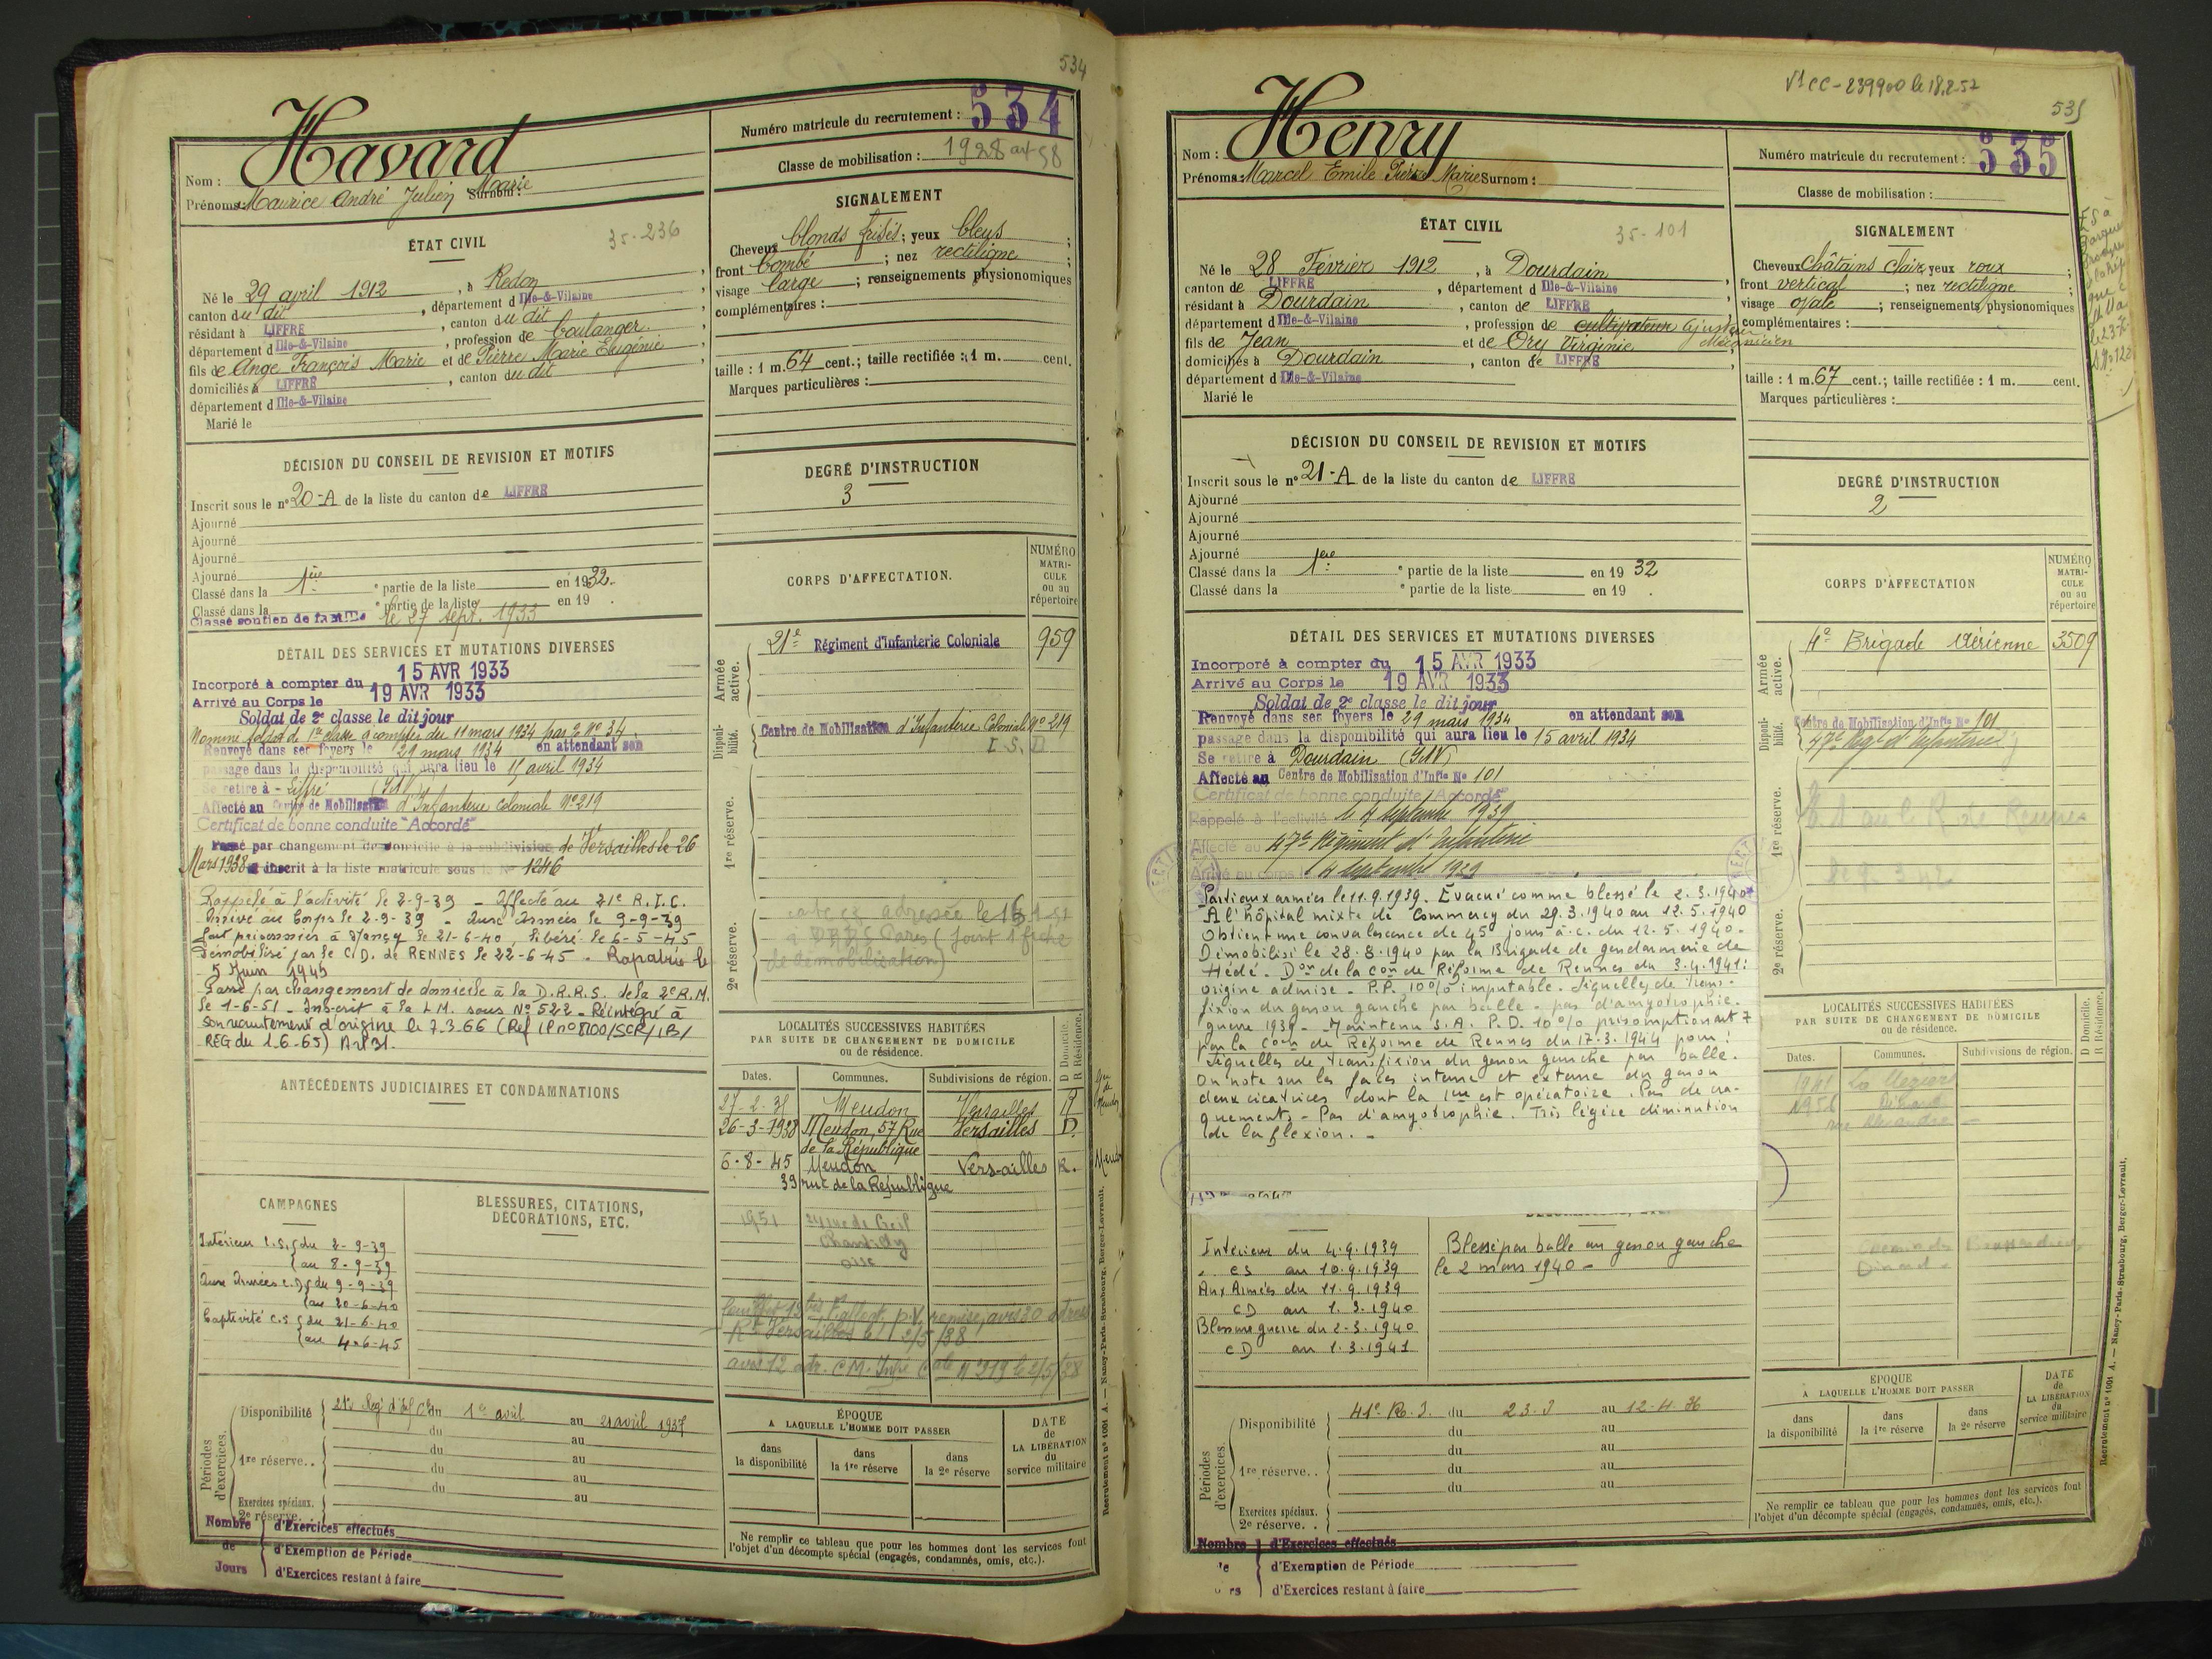 534
Havard
Nom :
Prénoms : Maurice André Julien Marie Surnom :
Numéro matricule du recrutement : 534
Classe de mobilisation : 1928 art 58
ÉTAT CIVIL
35-236
Né le 29 avril 1912, à Redon,
canton du dit, département d Ille-&-Vilaine,
résidant à LIFFRÉ, canton du dit,
département d Ille-&-Vilaine, profession de boulanger,
fils de Ange François Marie et de Pierre Marie Eugénie,
domiciliés à LIFFRÉ, canton du dit,
département d Ille-&-Vilaine
Marié le
SIGNALEMENT
Cheveux blonds frisés; yeux bleus;
front bombé; nez rectiligne;
visage large; renseignements physionomiques
complémentaires :
taille : 1 m. 64 cent.; taille rectifiée : 1 m. cent.
Marques particulières :
DÉCISION DU CONSEIL DE REVISION ET MOTIFS
Inscrit sous le n° 20-A de la liste du canton de LIFFRÉ
Ajourné
Ajourné
Ajourné
Ajourné
Classé dans la 1ère e partie de la liste en 1932.
Classé dans la e partie de la liste en 19 .
Classé soutien de famille le 27 sept. 1933
DEGRÉ D'INSTRUCTION
3
DÉTAIL DES SERVICES ET MUTATIONS DIVERSES
Incorporé à compter du 15 AVR 1933
Arrivé au Corps le 19 AVR 1933
Soldat de 2e classe le dit jour
Nommé soldat de 1re classe à compter du 11 mars 1934 par O. N° 34
Renvoyé dans ses foyers le 29 mars 1934 en attendant son
passage dans la disponibilité qui aura lieu le 15 avril 1934
Se retire à Liffré (I&V)
Affecté au Centre de Mobilisation d'Infanterie Coloniale N° 219
Certificat de bonne conduite "Accordé"
Passé par changement de domicile à la subdivision de Versailles le 26
Mars 1938 et inscrit à la liste matricule sous le N° 1246
Rappelé à l'activité le 2-9-39 - Affecté au 21e R.I.C.
Arrivé au Corps le 2-9-39 - Aux Armées le 9-9-39
fait prisonnier à Nancy le 21-6-40, libéré le 6-5-45
Démobilisé par le C.D. de RENNES le 22-6-45 - Rapatrié le
5 Juin 1945
Passé par changement de domicile à la D.R.R.S. de la 2e R.M.
le 1-6-51 - Inscrit à la L.M. sous N° 522 - Réintégré à
son recrutement d'origine le 7.3.66 (Ref IM n° 8100/SCR/1B/
REG du 1.6-65) Art 31.
CORPS D'AFFECTATION.
NUMÉRO MATRICULE ou au répertoire
Armée active.
21e Régiment d'Infanterie Coloniale 959
Disponibilité.
Centre de Mobilisation d'Infanterie Coloniale N° 219
I.S. D.
1re réserve.
2e réserve.
à DRRS Paris (joint 1 fiche
de démobilisation)
ANTÉCÉDENTS JUDICIAIRES ET CONDAMNATIONS
LOCALITÉS SUCCESSIVES HABITÉES
PAR SUITE DE CHANGEMENT DE DOMICILE
ou de résidence.
D Domicile. R Résidence.
Dates. Communes. Subdivisions de région.
27-2-35 Meudon Versailles R
26-3-1938 Meudon, 57 Rue Versailles D.
de la République
6-8-45 Meudon Versailles R.
39 rue de la République
1951 rue de Creil
Chantilly
Oise
CAMPAGNES
Intérieur C.S. du 2-9-39
au 8-9-39
Aux Armées C.D. du 9-9-39
au 20-6-40
Captivité C.S. du 21-6-40
au 4-6-45
BLESSURES, CITATIONS,
DÉCORATIONS, ETC.
Rt Versailles le 2/5/38
avis 12 adr. C.M. Infie Cale N° 219 le 2/5/38
Périodes d'exercices.
Disponibilité 21e Reg. d'Inf. Cle du 1er avril au 21 avril 1937
du au
1re réserve.. du au
du au
du au
Exercices spéciaux.
2e réserve..
Nombre de Jours
d'Exercices effectués
d'Exemption de Période
d'Exercices restant à faire
ÉPOQUE
A LAQUELLE L'HOMME DOIT PASSER
dans la disponibilité
dans la 1re réserve
dans la 2e réserve
DATE de LA LIBÉRATION du service militaire
Ne remplir ce tableau que pour les hommes dont les services font
l'objet d'un décompte spécial (engagés, condamnés, omis, etc.).
Recrutement n° 1001 A. — Nancy-Paris-Strasbourg, Berger-Levrault.
V1CC-239900 le 18.2.52
535
Henry
Nom :
Prénoms : Marcel Emile Pierre Marie Surnom :
Numéro matricule du recrutement : 535
Classe de mobilisation :
ÉTAT CIVIL
35-101
Né le 28 Février 1912, à Dourdain,
canton de LIFFRÉ, département d Ille-&-Vilaine,
résidant à Dourdain, canton de LIFFRÉ,
département d Ille-&-Vilaine, profession de cultivateur Ajusteur Mécanicien
fils de Jean et de Ory Virginie,
domiciliés à Dourdain, canton de LIFFRÉ,
département d Ille-&-Vilaine
Marié le
SIGNALEMENT
Cheveux Châtains clair, yeux roux;
front vertical; nez rectiligne;
visage ovale; renseignements physionomiques
complémentaires :
taille : 1 m. 67 cent.; taille rectifiée : 1 m. cent.
Marques particulières :
DÉCISION DU CONSEIL DE REVISION ET MOTIFS
Inscrit sous le n° 21-A de la liste du canton de LIFFRÉ
Ajourné
Ajourné
Ajourné
Ajourné
Classé dans la 1ère e partie de la liste en 19 32
Classé dans la e partie de la liste en 19 .
DEGRÉ D'INSTRUCTION
2
DÉTAIL DES SERVICES ET MUTATIONS DIVERSES
Incorporé à compter du 15 AVR 1933
Arrivé au Corps le 19 AVR 1933
Soldat de 2e classe le dit jour
Renvoyé dans ses foyers le 29 mars 1934 en attendant son
passage dans la disponibilité qui aura lieu le 15 avril 1934
Se retire à Dourdain (I&V)
Affecté au Centre de Mobilisation d'Infie N° 101
Certificat de bonne conduite "Accordé"
Rappelé à l'activité le 4 septembre 1939
Affecté au 47e Régiment d'Infanterie
Arrivé au corps le 4 septembre 1939
Parti aux armées le 11.9.1939. Evacué comme blessé le 2.3.1940
A l'hôpital mixte de Commercy du 29.3.1940 au 12.5.1940
Obtient une convalescence de 45 jours à.c. du 12.5.1940.
Démobilisé le 28.8.1940 par la Brigade de gendarmerie de
Hédé. Don de la Con de Réforme de Rennes du 3.4.1941:
origine admise - P.P. 10% imputable. Séquelles de trans-
fixion du genou gauche par balle - pas d'amyotrophie.
guerre 1939 - Maintenu S.A. P.D. 10% présomption art 7
par la Con de Réforme de Rennes du 17.3.1944 pour:
Séquelles de transfixion du genou gauche par balle.
On note sur les faces interne et externe du genou
deux cicatrices dont la 1ère est opératoire. Pas de cra-
quements - Pas d'amyotrophie. Très légère diminution
de la flexion. -
CORPS D'AFFECTATION
NUMÉRO MATRICULE ou au répertoire
Armée active.
4e Brigade Aérienne 3509
Disponibilité.
Centre de Mobilisation d'Infie N° 101
47e Régt d'Infanterie
1re réserve.
2e réserve.
LOCALITÉS SUCCESSIVES HABITÉES
PAR SUITE DE CHANGEMENT DE DOMICILE
ou de résidence.
D Domicile. R Résidence.
Dates. Communes. Subdivisions de région.
1941
1956 Dinard
Intérieur du 4.9.1939
CS au 10.9.1939
Aux Armées du 11.9.1939
CD au 1.3.1940
Blessure guerre du 2.3.1940
CD au 1.3.1941
Blessé par balle au genou gauche
le 2 mars 1940 -
Périodes d'exercices.
Disponibilité 41e R.I. du 23.3 au 12-4.36
du au
du au
1re réserve.. du au
du au
Exercices spéciaux.
2e réserve..
Nombre
d'Exercices effectués
d'Exemption de Période
d'Exercices restant à faire
ÉPOQUE
A LAQUELLE L'HOMME DOIT PASSER
dans la disponibilité
dans la 1re réserve
dans la 2e réserve
DATE de LA LIBÉRATION du service militaire
Ne remplir ce tableau que pour les hommes dont les services font
l'objet d'un décompte spécial (engagés, condamnés, omis, etc.).
Recrutement n° 1001 A. — Nancy-Paris-Strasbourg, Berger-Levrault.